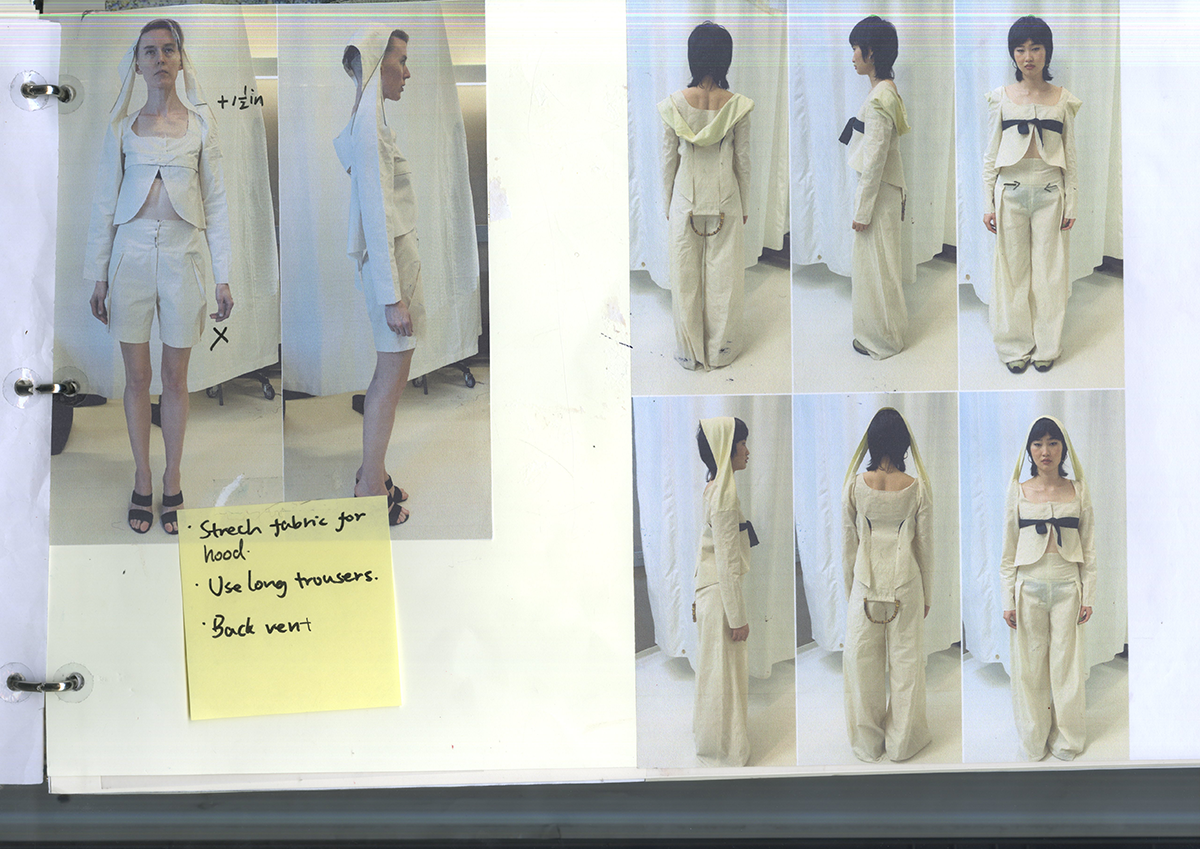 +1½in
X
· Strech fabric for
hood.
· Use long trousers.
· Back vent